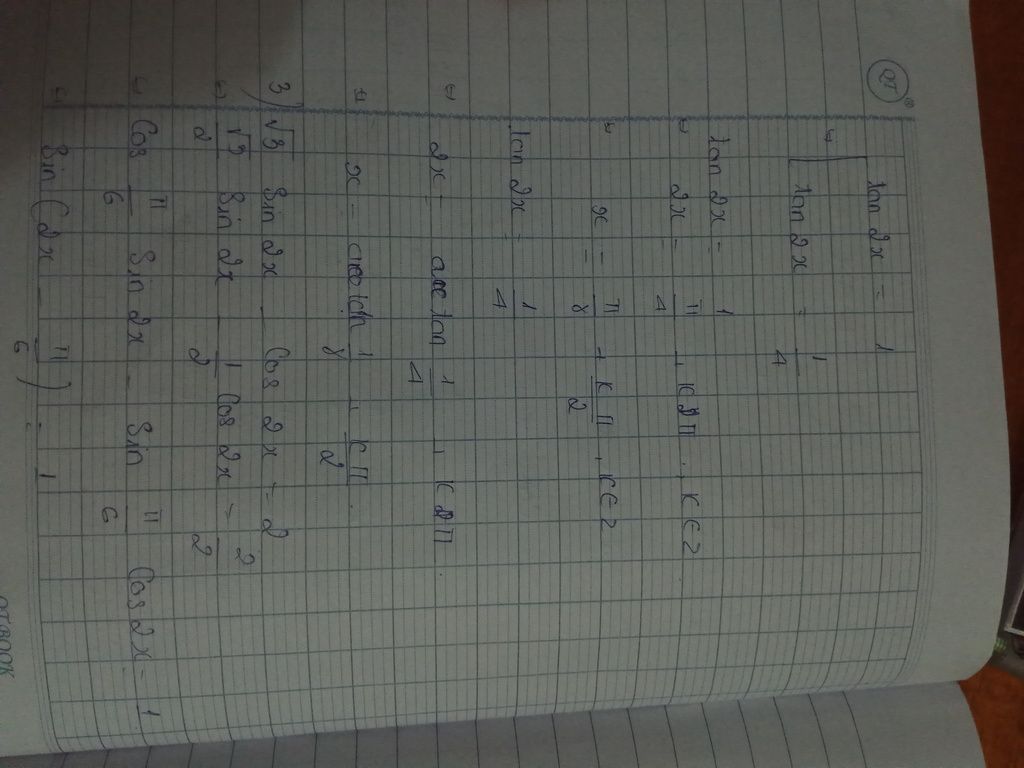 tan 2x = 1
↔ [ tan 2x = 1/4
tan 2x = 1
↔ 2x = π/4 + k2π, k ∈ Z
↔ x = π/8 + kπ/2, k ∈ Z
tan 2x = 1/4
↔ 2x = arctan 1/4 + k2π
↔ x = arctan 1/8 + kπ/2
3) √3 sin 2x - cos 2x = 2
↔ √3/2 sin 2x - 1/2 cos 2x = 2/2
↔ cos π/6 sin 2x - sin π/6 cos 2x = 1
↔ sin (2x - π/6) = 1